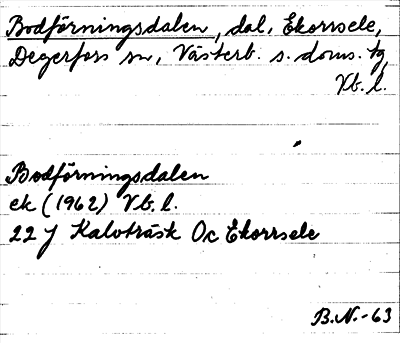 Bodförningsdalen, dal, Ekorrsele,
Degerfors sn, Västerb. s. doms. tg,
Vb. l.
Bodförningsdalen
ek (1962) Vb. l.
22 J Kalvträsk Oc Ekorrsele
B.N.-63